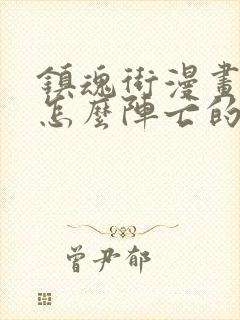 鎮魂街漫畫
怎麼陣亡的
曾尹郁